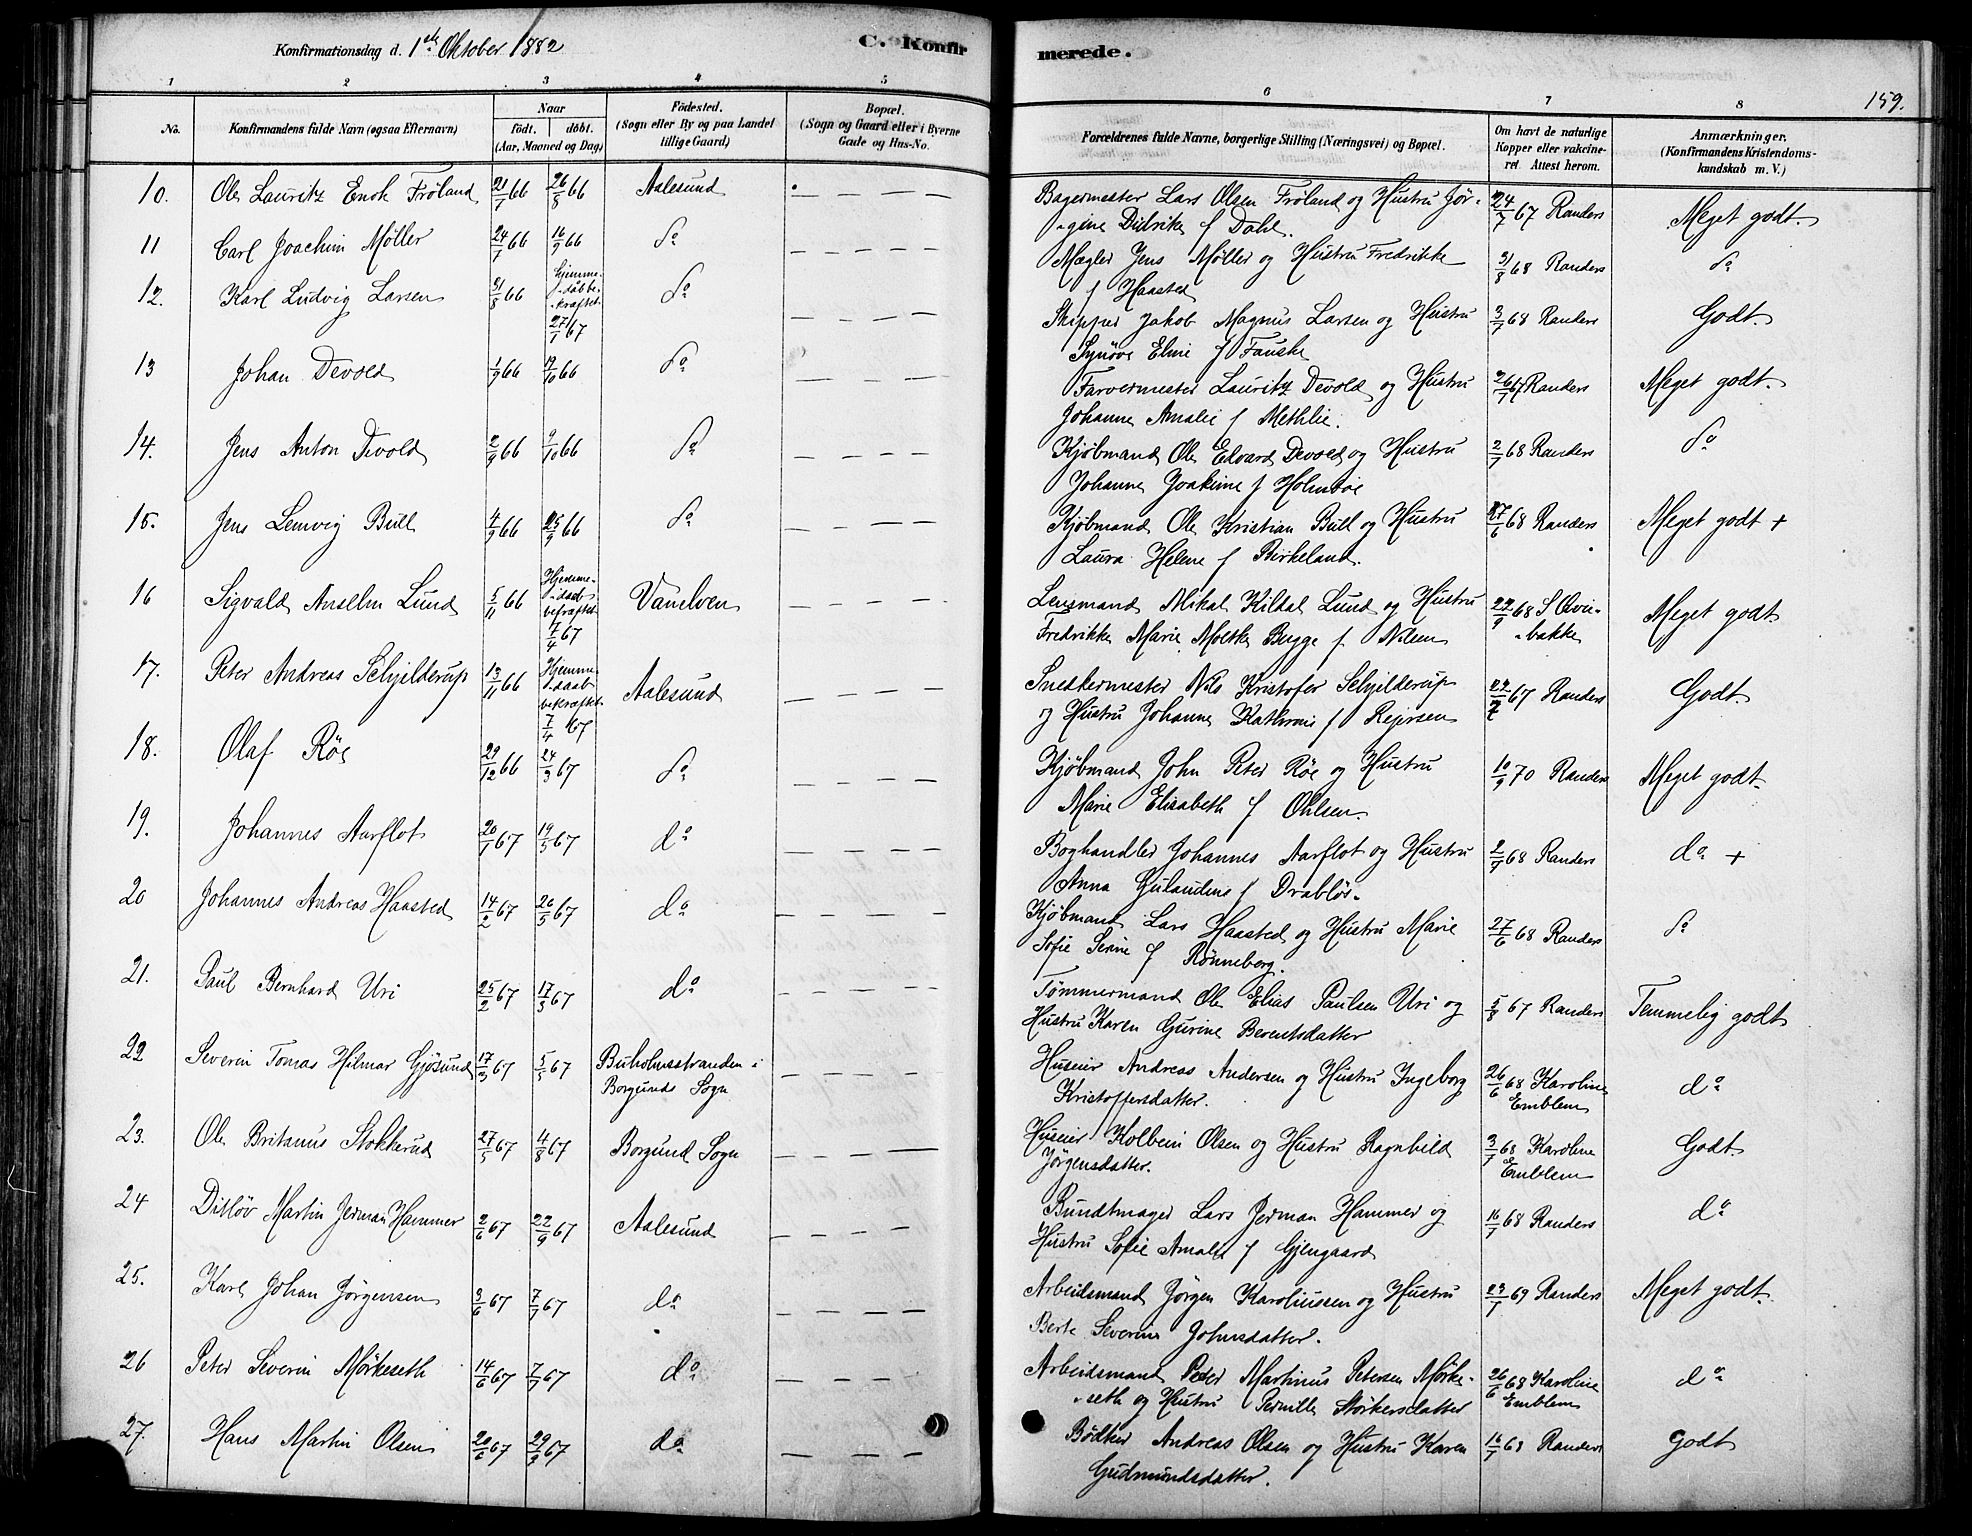 Konfirmationsdag d. 1ste Oktober 1882
C. Konfirmerede.
159.
1 2 3 4 5 6 7 8
No.
Konfirmandens fulde Navn (ogsaa Efternavn)
Naar
födt. döbt.
(Aar, Maaned og Dag)
Födested.
(Sogn eller By og paa Landet
tillige Gaard)
Bopæl.
(Sogn og Gaard eller i Byerne
Gade og Hus-No.
Forældrenes fulde Navne, borgerlige Stilling (Næringsvei) og Bopæl.
Om havt de naturlige
Kopper eller vakcine-
ret. Attest herom.
Anmærkninger.
(Konfirmandens Kristendoms-
kundskab m. V.)
10. Ole Lauritz Enok Frøland 21/7 66 26/8 66 Aalesund Bagermester Lars Olsen Frøland og Hustru Jør- 24/7 67 Randers Meget godt.
-gine Didrikke f Dahl.
11 Carl Joachim Møller 24/7 66 16/9 66 do Mægler Jens Møller og Hustru Fredrikke 31/8 68 Randers do
f Haasted
12. Karl Ludvig Larsen 31/8 66 hjemme-
-döbt be-
-kræftet
27/1 67 do Skipper Jakob Magnus Larsen og Hustru 3/7 68 Randers Godt.
Synöve Eline f Fauske
13 Johan Devold 1/9 66 19/10 66 do Farvermester Lauritz Devold og Hustru 26/7 67 Randers Meget godt.
Johanne Amalie f Methlie.
14. Jens Anton Devold 2/9 66 9/10 66 do Kjøbmand Ole Edvard Devold og Hustru 2/7 68 Randers do
Johanne Joakime f Holmböe
15. Jens Lemvig Bull 4/9 66 25/9 66 do Kjøbmand Ole Kristian Bull og Hustru 27/6 68 Randers Meget godt +
Laura Helene f Birkeland.
16 Sigvald Anselm Lund 5/11 66 Hjemme-
-daab
bekræftet
7/4 67 Vanelven Lensmand Mikal Kildal Lund og Hustru 22/9 68 S Qvie- Meget godt
Fredrikke Marie Moltke Bugge f Nilsen -bakke
17. Peter Andreas Schjelderup 13/11 66 Hjemme
-daab
bekræftet
7/4 67 Aalesund Snedkermester Nils Kristofer Schjelderup 67 Randers Godt.
og Hustru Johanne Kathrine f Rejersen
18. Olaf Röe 29/12 66 24/3 67 do Kjøbmand John Peter Röe og Hustru 10/9 70 Randers Meget godt.
Marie Elisabeth f Ohlsen.
19. Johannes Aarflot 20/1 67 19/5 67 do Boghandler Johannes Aarflot og Hustru 68 Randers do +
Anna f Drabløs.
20 Johannes Andreas Haasted 14/2 67 26/5 67 do Kjøbmand Lars Haasted og Hustru Marie 27/6 68 Randers do
Sofie Serine f Rönneberg.
21. Paul Bernhard Uri 25/2 67 17/3 67 do Tömmermand Ole Elias Paulsen Uri og 5/8 67 Randers Temmelig godt
Hustru Karen Gurine Berentsdatter
22 Severin Tomas Hilmar Gjøsund 17/3 67 5/5 67 Buholmsstranden i Huseier Andreas Andersen og Hustru Ingeborg 26/6 68 Karoline do
Borgunds Sogn Kristoffersdatter. Emblem
23. Ole Britanus Stokkerud 27/5 67 4/8 67 Borgund Sogn Huseier Kolbein Olsen og Hustru Ragnhild 3/7 68 Karoline Godt.
Jørgensdatter. Emblem
24 Ditlöv Martin Jerman Hammer 2/6 67 22/9 67 Aalesund Bundtmager Lars Jerman Hammer og 16/7 68 Randers do
Hustru Sofie Amalie f Gjengaard
25. Karl Johan Jørgensen 3/6 67 7/7 67 do Arbeidsmand Jørgen Karoliussen og Hustru 69 Randers Meget godt.
Berte Severine Johnsdatter.
26 Peter Severin Mörkeseth 14/6 67 7/7 67 do Arbeidsmand Peder Martinus Petersen Mörke- 26/6 68 Karoline do
-seth og Hustru Pernille Störkersdatter Emblem
27. Hans Martin Olsen 20/6 67 29/9 67 do Bödker Andreas Olsen og Hustru Karen 16/7 68 Randers Godt
Gudmundsdatter.